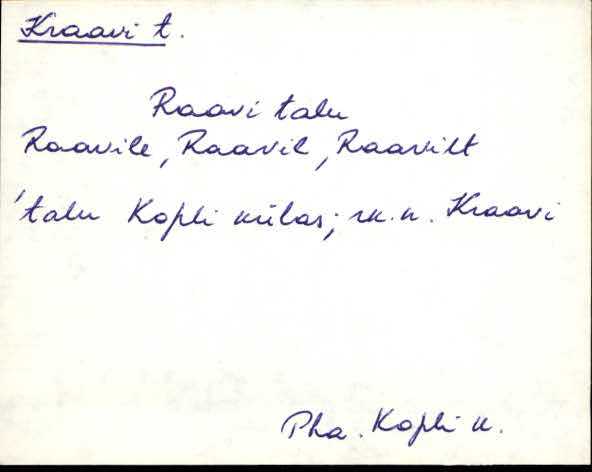 Kraavi t.
Raavi talu
Raavile, Raavil, Raavilt
'talu Kopli külas; rk. n. Kraavi
Pha. Kopli k.